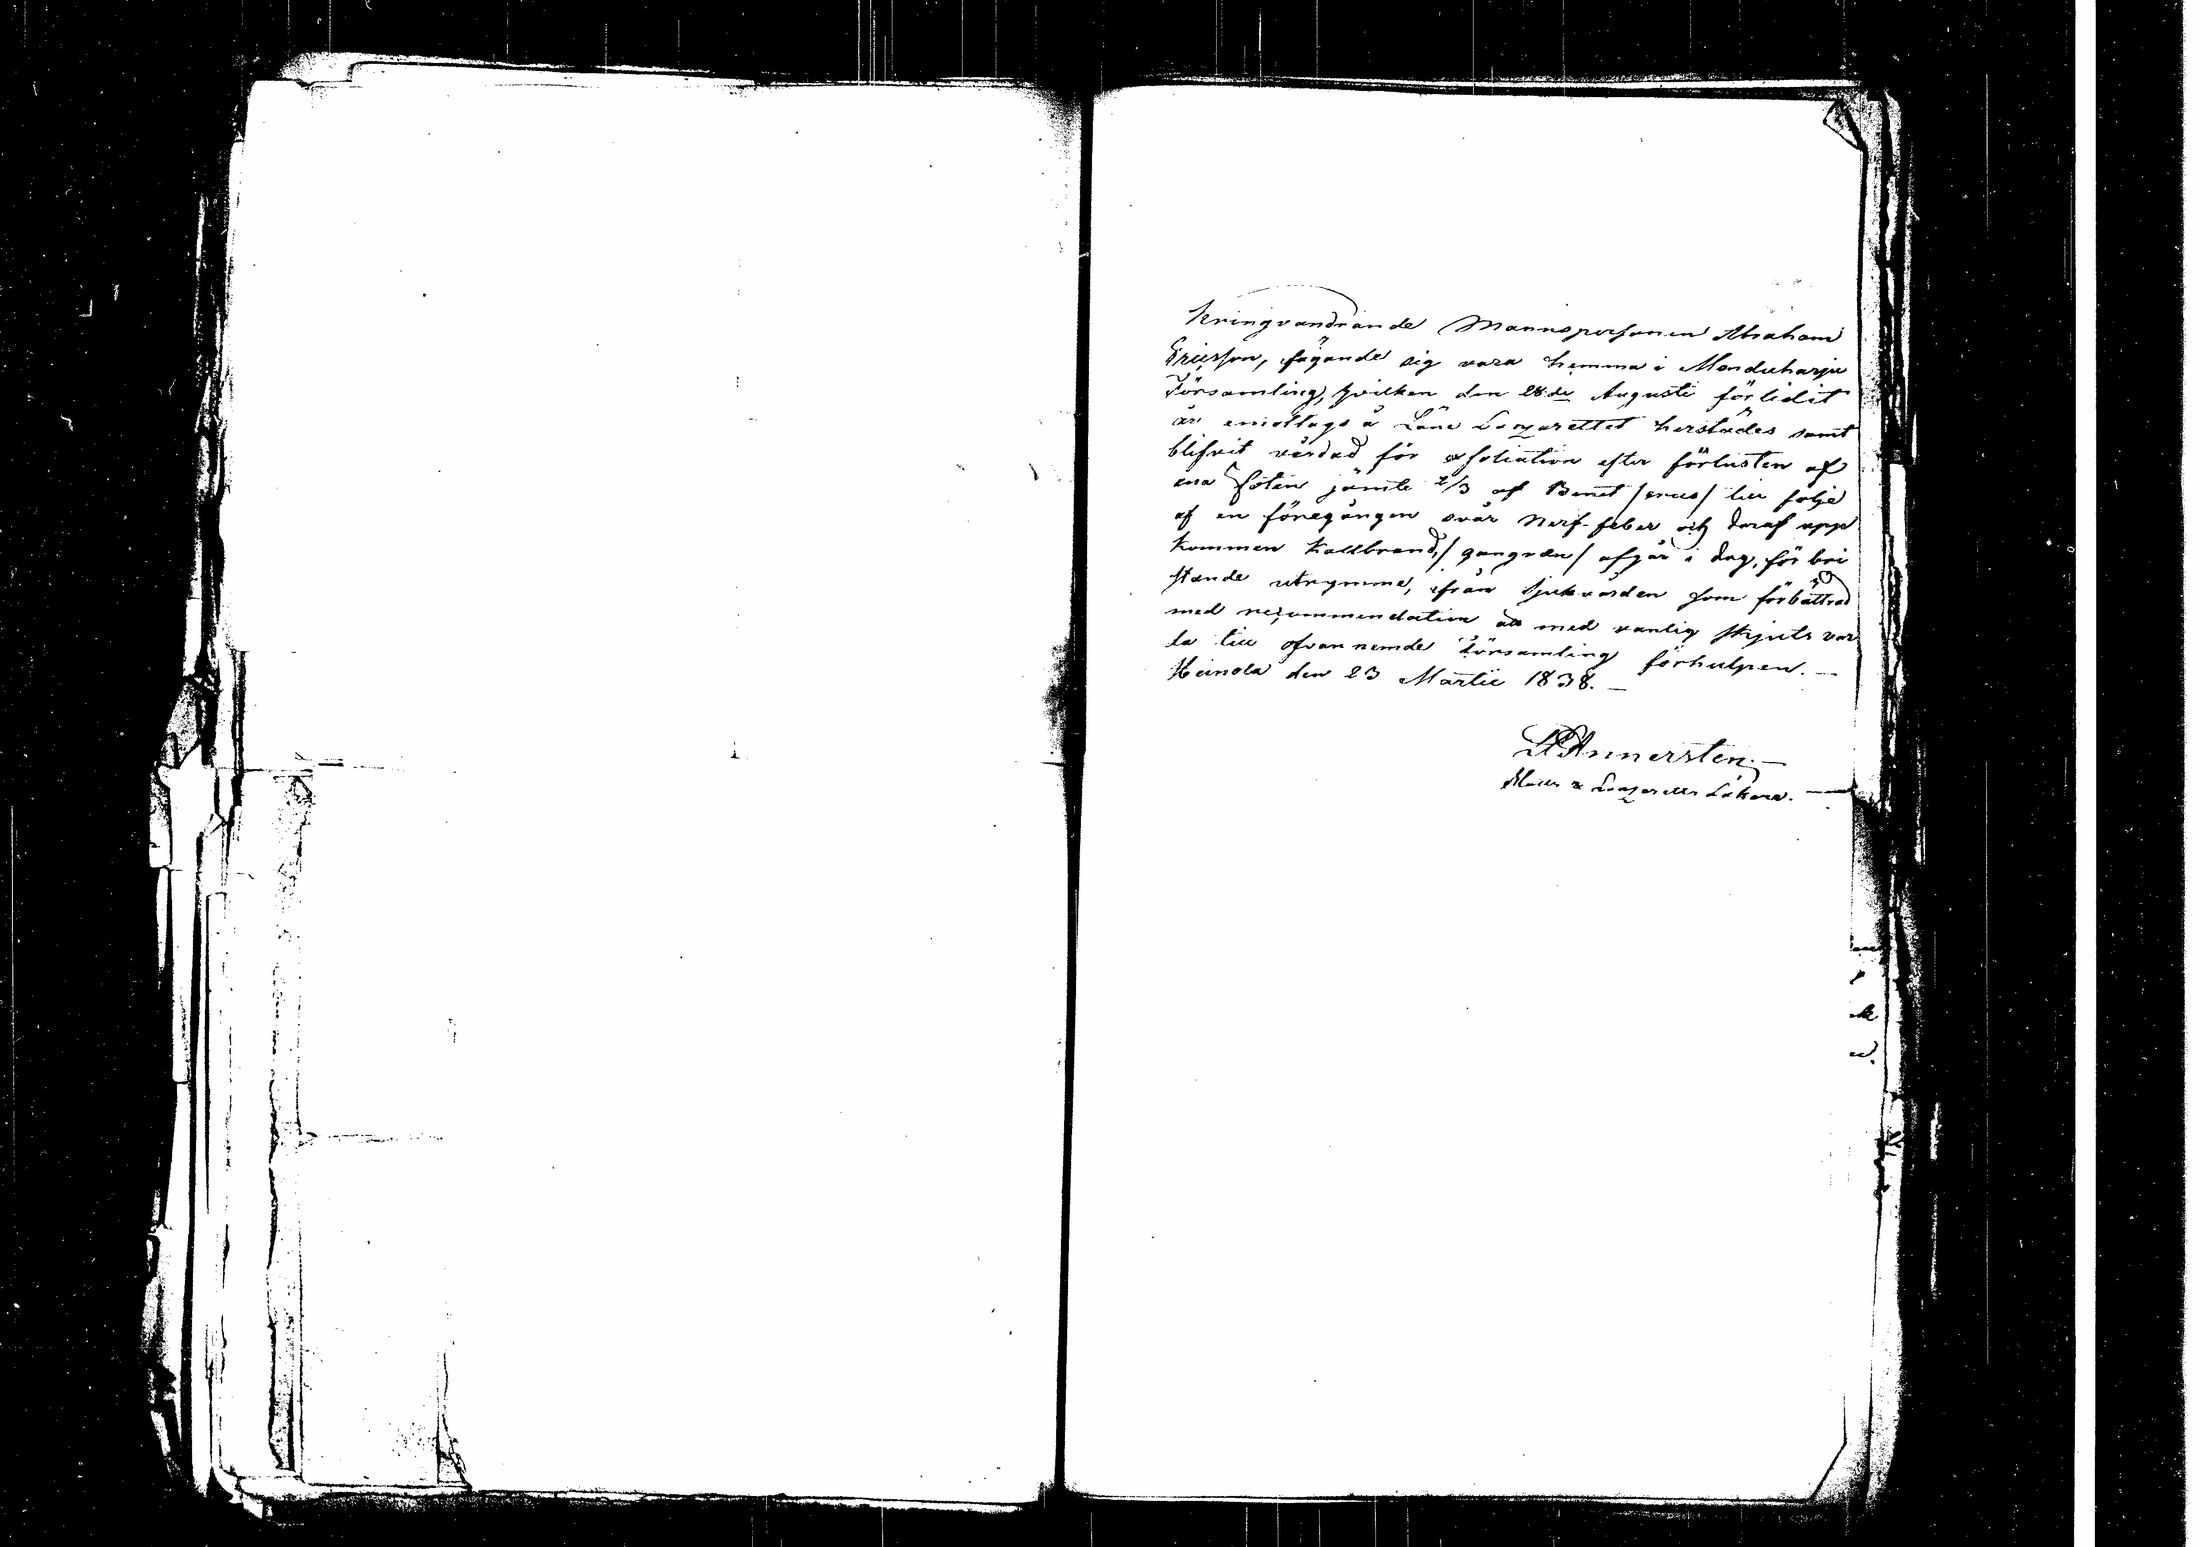 Kringvandrande Mannspersonen Abraham
Ericsson, sägande sig vara hemma i Mänduharju
Församling, hvilken den 28de Augusti förlidit
år emottags å Läne Lazarettet herstädes samt
blifvit vårdad för exfoliation efter förlusten af
ena foten jämte 2/3 af Benet /crus/ till följe
af en föregången svår Nerf-feber och deraf upp
kommen Kallbrand, /gangræn/ afgår i dag, för bri
stande utrymme, ifrån sjukvården som förbättrad
med recommendation att med vanlig skjuts var
da till ofvannemde Församling förhulpen. —
Heinola den 23 Martii 1838. —
Annersten. —
Lazaretts Läkare. —